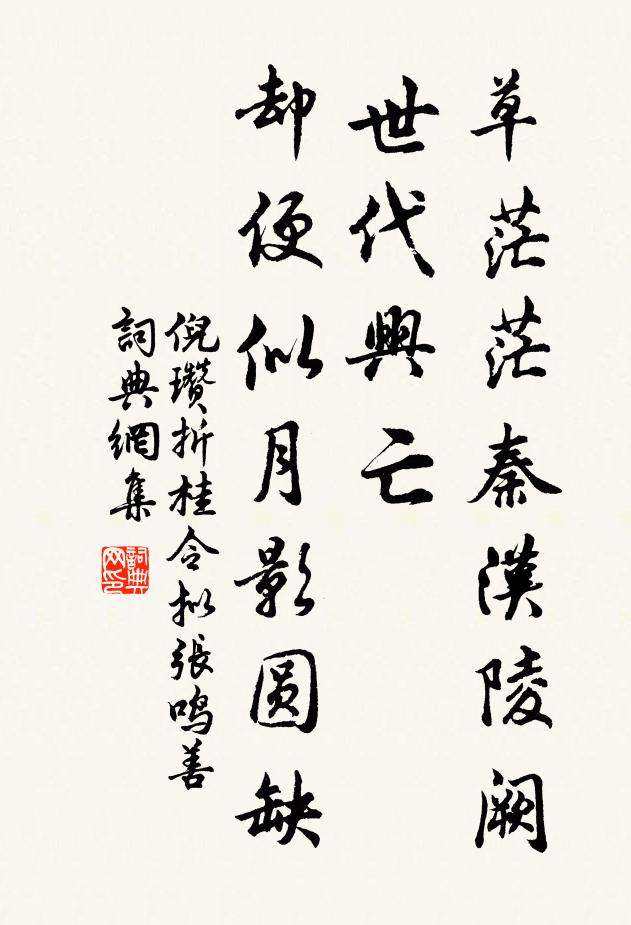 草茫茫秦漢陵闕
世代興亡
却便似月影圓缺
倪瓚折桂令拟張鸣善
詞典網集
詞典网印